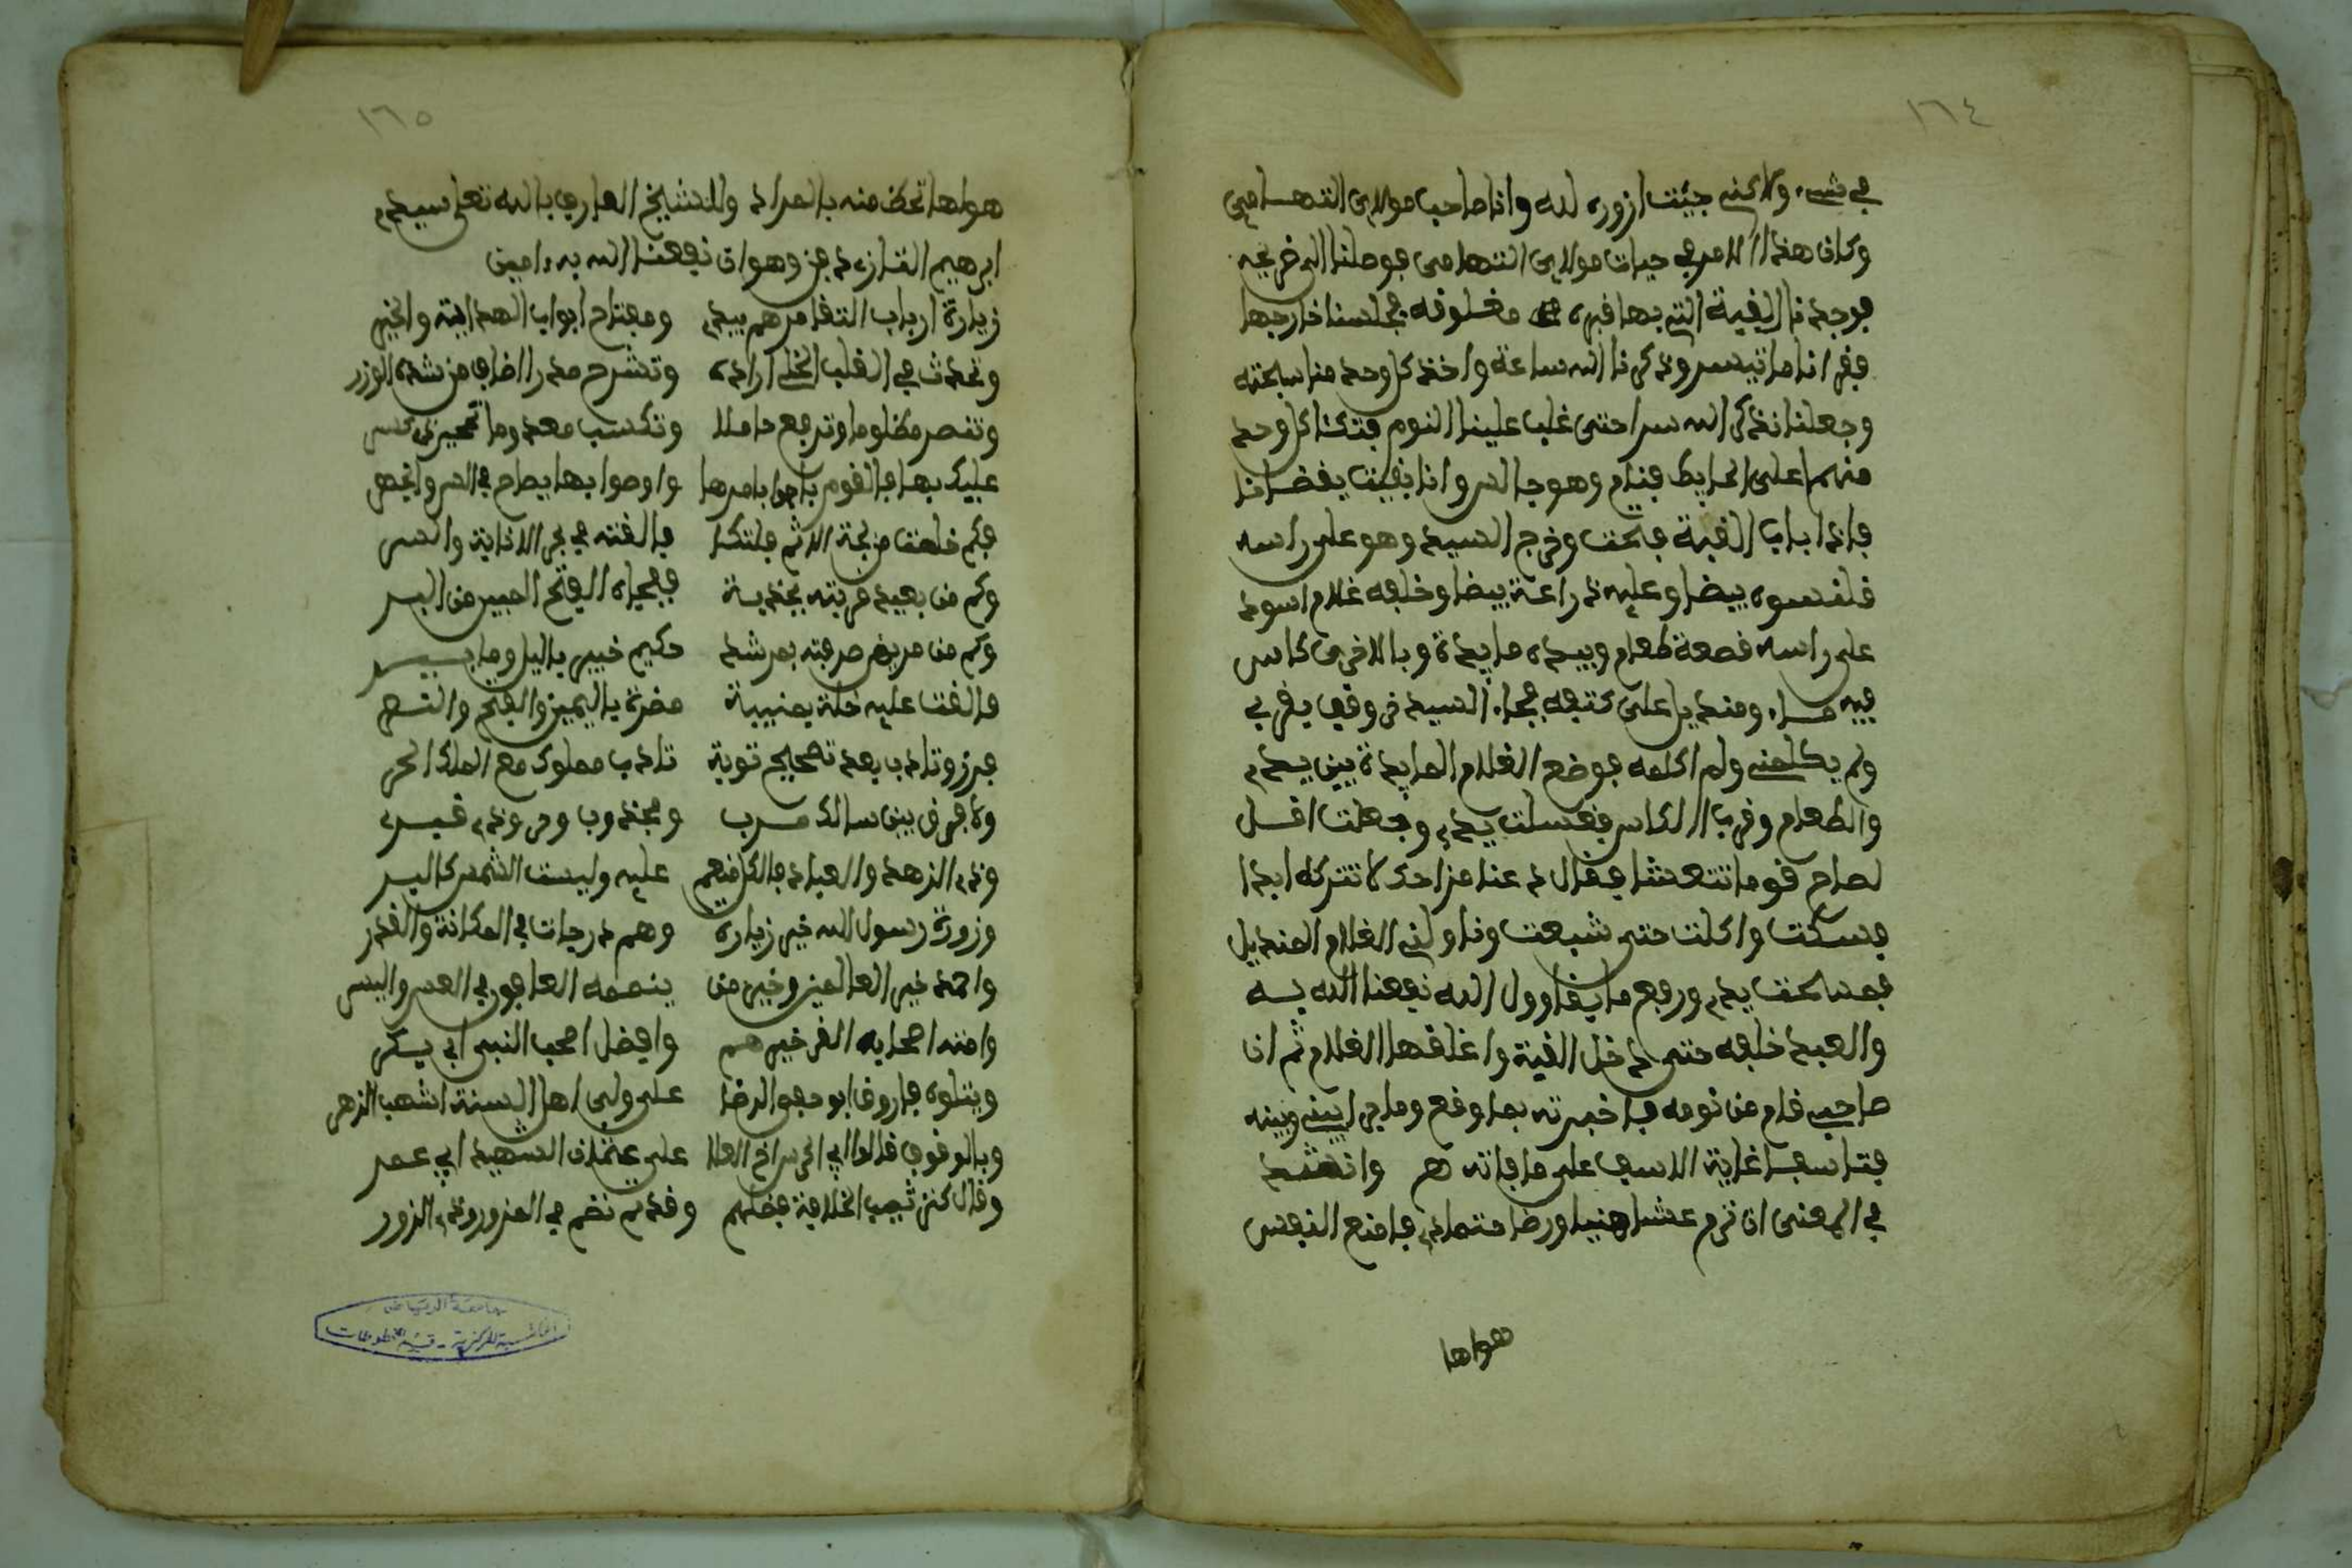 ١٦٤
في شيء ولاكني جيئت ازوره لله وانا صاحب مولاي التهامي
وكان هذا الامر في حيات مولاي التهامي فوصلنا الى ضريحه
فوجدنا القبة التي بها قبره مغلوقه فجلسنا خارجها
فقرانا ما تيسر وذكرنا الله ساعة واخذ كل وحد منا سبحته
وجعلنا نذكر الله سرا حتى غلب علينا النوم فتكئا كل وحد
منهما على الحايط فنام وهو جالس وانا بقيت يقضانا
فاذا باب القبة فتحت وخرج السيد وهو على راسه
قلنسوه بيضا وعليه دراعة بيضا وخلفه غلام اسود
على راسه قصعة طعام وبيده مايدة وبالاخرى كاس
فيه ماء ومنديل على كتفه فجاء السيد ووقف بقربي
ولم يكلمني ولم اكلمه فوضع الغلام المايدة بين يدي
والطعام وقرب الكاس فغسلت يدي وجعلت اقل
لصاح قوما تتعشا فقال دعنا من احد لا تتركه ابدا
فسكت واكلت حتى شبعت وناولني الغلام المنديل
فمسحت يدي ورفع ما بقا وول الله نفعنا الله به
والعبد خلفه حتى دخل القبة واغلقها الغلام ثم ان
صاحبي قام من نومه فاخبرته بما وقع وما جرا بيني وبينه
فتاسفا غاية الاسف على ما فاته هم وانشد
في المعنى ان ترم عشا هنيا ورضا متمادي فامنع النفس
هواها
١٦٥
هواها تحظ منه بالمراد وللشيخ العارف بالله تعلى سيدي
ابرهيم التازي دفن وهوان نفعنا الله به ءامين
زيارة ارباب التقا مرهم يبري ومفتاح ابواب الهداية والخير
وتحدث في القلب الخلي ارادة وتشرح صدرا ضاق من شدة الوزر
وتنصر مظلوما وترفع خاملا وتكسب معدوما وتجبر ذي كسر
عليك بها فالقوم باحوا بامرها واوصوا بها يصاح في السر والجهر
فكم خلصت من لجة الاثم فاتكا فالقته في بحر الانابة والسر
وكم من بعيد قربته بجذبة ففاجاه الفتح المبين من البر
وكم من مريض صرفته بمرشد حكيم خبير بالبلا وما يبر
فالقت عليه حلة يمنيية مضرة باليمن والفتح والنصر
فزر وتادب بعد تصحيح توبة تادب مملوك مع المالك الحر
ولا فرق بين سالك مرب ومجذوب وحي وذي قبر
وذي الزهد والعباد فالكل منعم عليه وليست الشمس كالبدر
وزورة رسول الله خير زيارة وهم درجات في المكانة والقدر
واحمد خير العالمين وخير من ييممه العافون في العسر واليسر
وامته اصحابه الغر خيرهم وافضل اصحب النبي ابي بكر
ويتلوه فاروق ابو حفص الرضا على ولي اهل السنة الشهب الزهر
وبالوقوف قالوا ابي الحسن اخ العلا على عثمان الشهيد ابي عمر
وقال كثير ثبت الخلافة فضلهم وقد تم نظم في المزور وذي الزور
جامعة الرياض
المكتبة المركزية - قسم المخطوطات